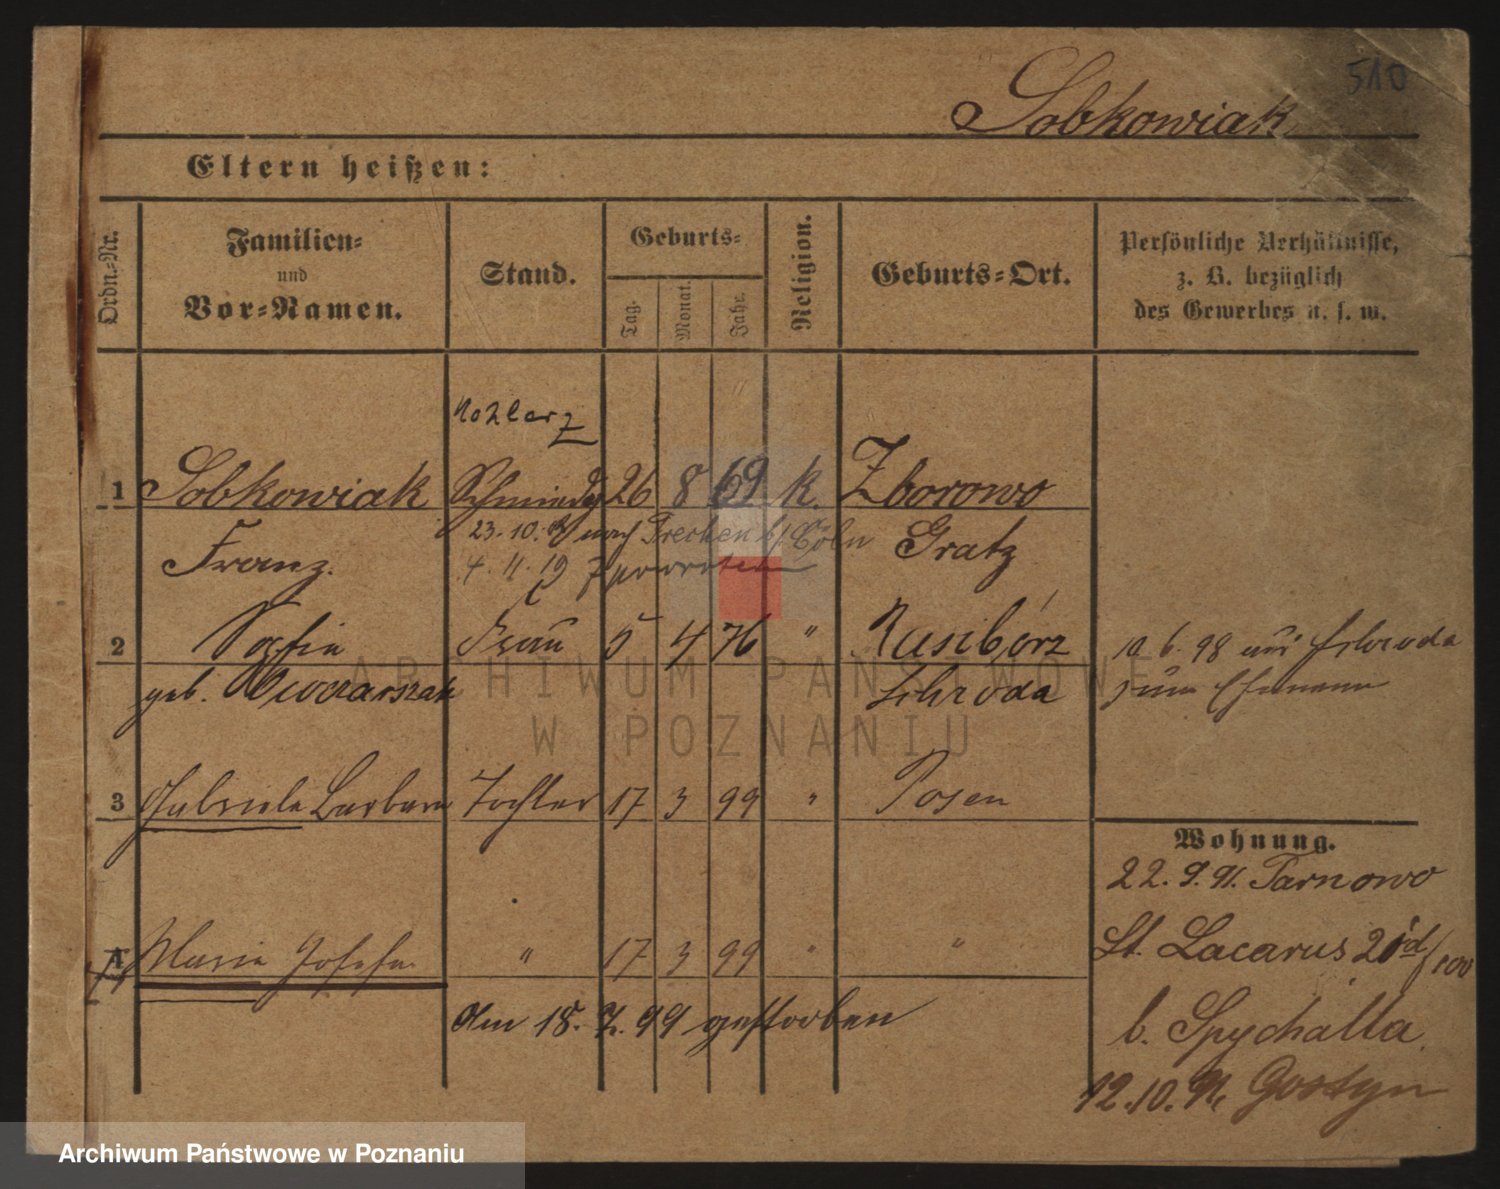 510
Sobkowiak
Eltern heißen:
Ordn.-Nr.
Familien-
und
Vor-Namen.
Stand.
Geburts-
Tag.
Monat.
Jahr.
Religion.
Geburts-Ort.
Persönliche Verhältnisse,
z. B. bezüglich
des Gewerbes u. s. w.
1 Sobkowiak Schmiedeg 26 8 69 k. Zborowo
Franz. 23.10. nach Frechen b/Cöln Gratz
4. 11. 19
2 Sofia Frau 5 4 76 " Rusiborz 10. 6. 98 aus Schroda
geb. Owczarszak Schroda zum Ehemann
3 Gabriele Barbara Tochter 17 3 99 " Posen
Wohnung.
22. 9. 91. Tarnowo
4 Maria Josefa " 17 3 99 " " St. Lacarus 20
Am 18. 7. 99 gestorben
b. Spychalla
12.10. Gostyn
ARCHIWUM PAŃSTWOWE
W POZNANIU
Archiwum Państwowe w Poznaniu